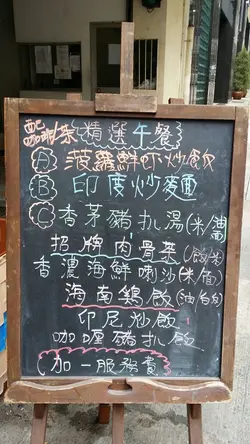 配咖啡/茶 精選午餐
A 菠蘿鮮虾炒飯
B 印度炒麵
C 香茅豬扒湯(米/油面)
招牌肉骨茶(飯/米)
香濃海鮮喇沙(米/面)
海南鷄飯(油/白饭)
印尼炒飯
咖喱豬扒飯
加一服務費